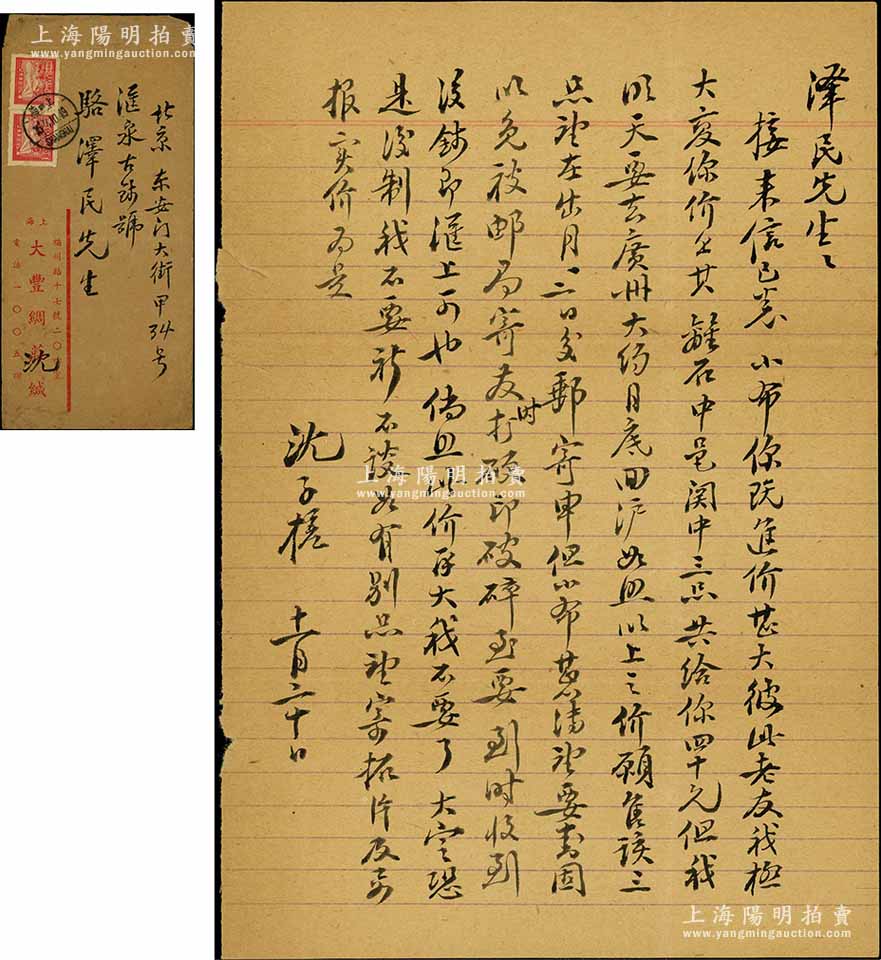 上海陽明拍賣
www.yangmingauction.com
北京 东安门大街甲34号
滙泉古錢號
駱澤民先生
上海
福州路十七號二〇
大豐綢 緘
沈
電話一〇〇五
上海陽明拍賣
www.yangmingauction.com
泽民先生
接来信已悉 小布你既進价甚大彼此老友我極
大変你价 其離石中邑関中三品共给你四十元但我
明天要去廣州大约月底回沪如照以上之价願售该三
品望在出月一二日交郵寄申但小布 望要 固
以免被邮局寄友打 时 印破碎至要 到时收到
後鈔即滙上可也 倘照此价再大我不要了 大 恐
是後制我不要 新不談如有别品望寄拓片及 
报实价为是
沈子槎 十一月二十日
上海陽明拍賣
www.yangmingauction.com